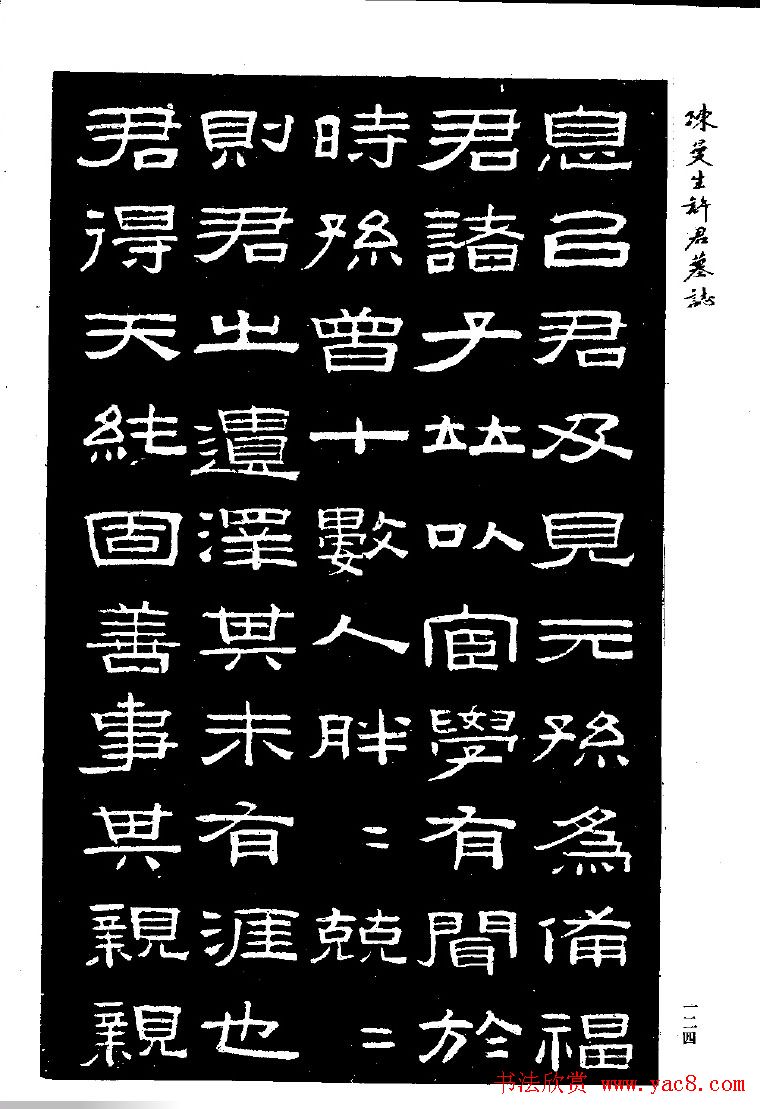 陳曼生許君墓誌
息已君及見元孫爲備福
君諸子竝㕥宦學有聞於
時孫曾十數人胖〻兢〻
則君之遺澤其未有涯也
君得天純固善事其親親
一二四
书法欣赏 www.yac8.com